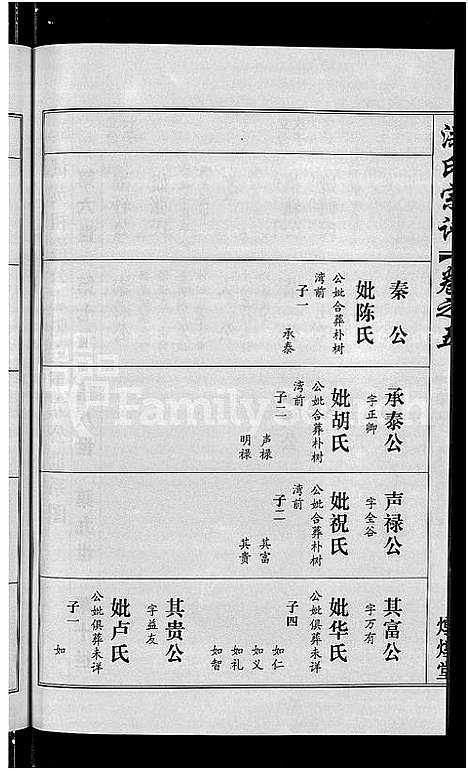 氏宗
卷之五
秦公
妣陈氏
公妣合葬朴树
湾前
子一
承泰
承泰公
字正卿
妣胡氏
公妣合葬朴树
湾前
子二
声禄
明禄
声禄公
字全谷
妣祝氏
公妣合葬朴树
湾前
子二
其富
其贵
其富公
字万有
妣华氏
公妣俱葬未详
子四
如仁
如义
如礼
如智
其贵公
字益友
妣卢氏
公妣俱葬未详
子一
如
堂
FamilySearch